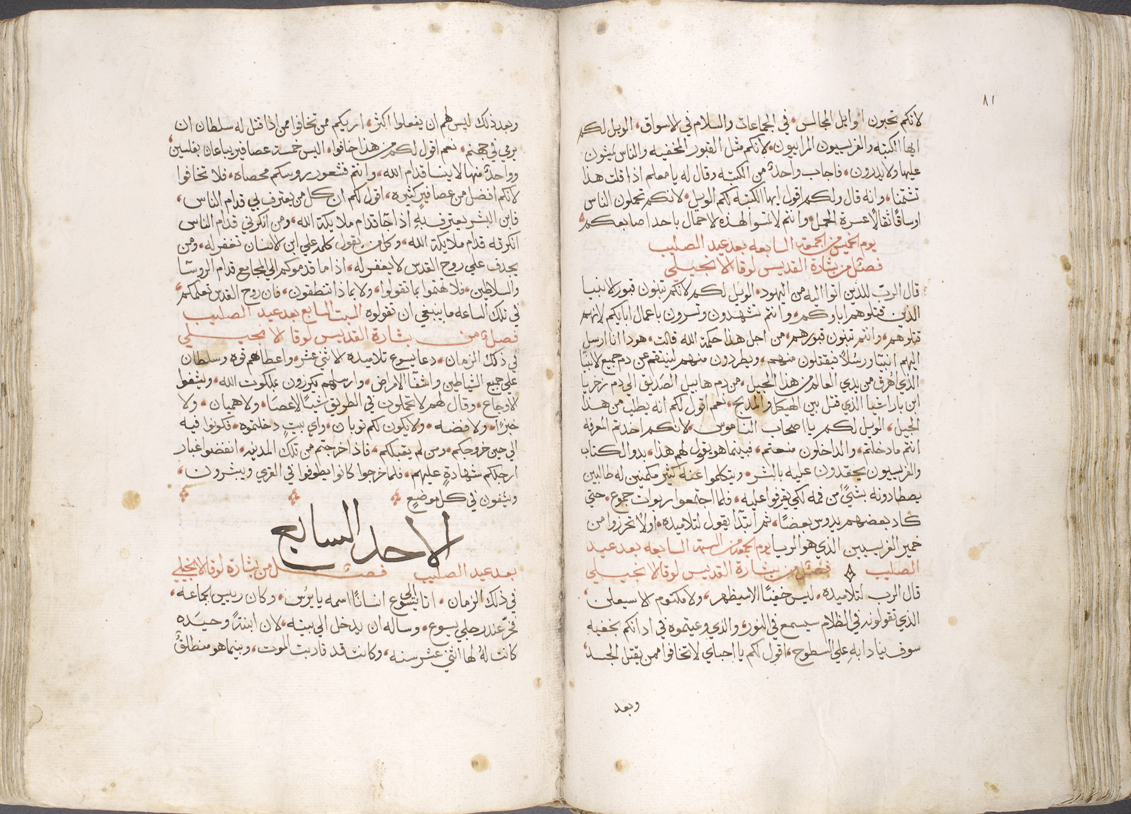 ٨١
لانكم تحبون اوايل المجالس، في الجماعات والسلام في الاسواق، الويل لكم
ايها الكتبه والفريسيون المرايون، لانكم مثل القبور المخفيه والناس يمشون
عليها ولا يدرون، فاجاب واحدٌ من الكتبه وقال له يا معلم اذا قلت هذا
تشتمنا، وانه قال ولكم اقول ايها الكتبه لكم الويل، لانكم تحملون الناس
اوساقًا ثقالًا عسرة الحمل، وانتم لا تمسوا لهذه الاحمال باحدا اصابعكم،
يوم الخميس من الجمعة السابعه بعد عيد الصليب
فصلٌ من بشارة القديس لوقا الانجيلي
قال الربّ للذين اتوا اليه من اليهود، الويل لكم لانكم تبنون قبور الانبيا
الذين قتلوهم اباوكم، وانتم تشهدون وتسرون باعمال ابايكم لانهم
قتلوهم، وانتم تبنون قبورهم، من اجل هذا حكمة الله قالت، هوذا انا ارسل
اليهم انبيًا ورسلًا فيقتلون منهم، ويطردون منهم لينتقم عن دم جميع الانبيا
الذي اهرق من بدي العالم من هذا الجيل، من دم هابيل الصدّيق الى دم زخريا
ابن باراخيا الذي قتل بين الهيكل والمذبح، نعم اقول لكم انه يطلب من هذا
الجيل، الويل لكم يا اصحاب الناموس، لانكم اخذتم المعرفه
انتم ما دخلتم، والداخلون منعتم، فبينما هو يقول لهم هذا، بدوا الكتاب
والفريسيون يحقدون عليه بالشر، ويتكلموا عنه كثير مكمنين له طالبين
يصطادونه بشيٍ من فمه لكي يقرفوا عليه، فلما اجتمعوا ربوات جموع، حتي
كاد بعضهم يدوس بعضًا، ثم ابتدا يقول لتلاميذه، اولًا تحرزوا من
خمير الفريسيين الذي هو الريا يوم الجمعه من الجمعة السابعه بعد عيد
الصليب فصلٌ من بشارة القديس لوقا الانجيلي
قال الرب لتلاميذه، ليس خفيًا الا سيظهر، ولا مكتوم الا سيعلن،
الذي تقولونه في الظلام سيسمع في النور، والذي وعيتموه في اذانكم بخفيه
سوف ينادا به علي السطوح، اقول لكم يا احباي لا تخافوا ممن يقتل الجسد،
وبعد
وبعد ذلك ليس لهم ان يفعلوا اكثر، اريكم من تخافوا ممن اذا قتل له سلطان ان
يرمي في جهنم، نعم اقول لكم من هذا خافوا، اليس خمسة عصافير يباعان بفلسين،
وواحدةٌ منها لا ينسا قدام الله، وانتم فشعور روسكم محصاه، فلا تخافوا
لانكم افضل من عصافير كثيره، اقول لكم ان كل من يعترف بي قدام الناس،
فابن البشر يعترف به اذا جا قدام ملايكة الله، ومن انكرني قدام الناس
انكرته قدام ملايكة الله، وكل من يقول كلمه علي ابن الانسان تغفر له، ومن
يجدف علي روح القدس لا يغفر له، اذا ما قدموكم الي المجامع قدام الروسا
والسلاطين، فلا تهتموا بما تقولوا، ولا بماذا تنطقون، فان روح القدس تعلمكم
في تلك الساعه ما ينبغي ان تقولوه السبت السابع بعد عيد الصليب
فصلٌ من بشارة القديس لوقا الانجيلي
في ذلك الزمان، دعا يسوع تلاميذه الاثني عشر، واعطاهم قوه وسلطان
علي جميع الشياطين واشفا الامراض، وارسلهم يكرزون بملكوت الله، ويشفوا
الاوجاع، وقال لهم لا تحملون في الطريق شيًا لا عصًا، ولا هميان، ولا
خبزًا، ولا فضه، ولا يكون لكم ثوبان، واي بيتٍ دخلتموه، فكونوا فيه
الى حين خروجكم، ومن لم يقبلكم، فاذا خرجتم من تلك المدينه، انفضوا غبار
ارجلكم شهادةٍ عليهم، فلما خرجوا كانوا يطوفوا في القري ويبشرون،
ويشفون في كل موضعٍ
الاحد السابع
بعد عيد الصليب فصلٌ من بشارة لوقا الانجيلي
في ذلك الزمان، اتا يسوع انسانًا اسمه يايرُس، وكان رييس الجماعه،
فخرّ عند رجلي يسوع، وساله ان يدخل الى بيته، لان ابنةً وحيده
كانت لهُ لها اثني عشر سنه، وكانت قد قاربت الموت، وبينما هو منطلقٌ